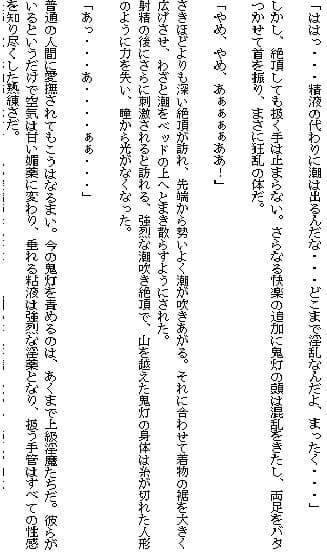 「ははっ・・・精液の代わりに潮は出るんだな・・・どこまで淫乱なんだよ、まったく・・・」
しかし、絶頂しても扱く手は止まらない。さらなる快楽の追加に鬼灯の頭は混乱をきたし、両足をバタ
つかせて首を振り、まさに狂乱の体だ。
「やめ、やめ、あぁぁぁぁああ！」
さきほどよりも深い絶頂が訪れ、先端から勢いよく潮が吹きあがる。それに合わせて着物の裾を大きく
広げさせ、わざと潮をベッドの上へとまき散らすようにされた。
射精の後にさらに刺激されると訪れる、強烈な潮吹き絶頂で、山を越えた鬼灯の身体は糸が切れた人形
のように力を失い、瞳から光がなくなった。
「あっ・・・あ・・・・ぁぁ・・・」
普通の人間に愛撫されてもこうはなるまい。今の鬼灯を責めるのは、あくまで上級淫魔たちだ。彼らが
いるというだけで空気は甘い媚薬に変わり、垂れる粘液は強烈な淫薬となり、扱う手管はすべての性感
を知り尽くした熟練さだ。